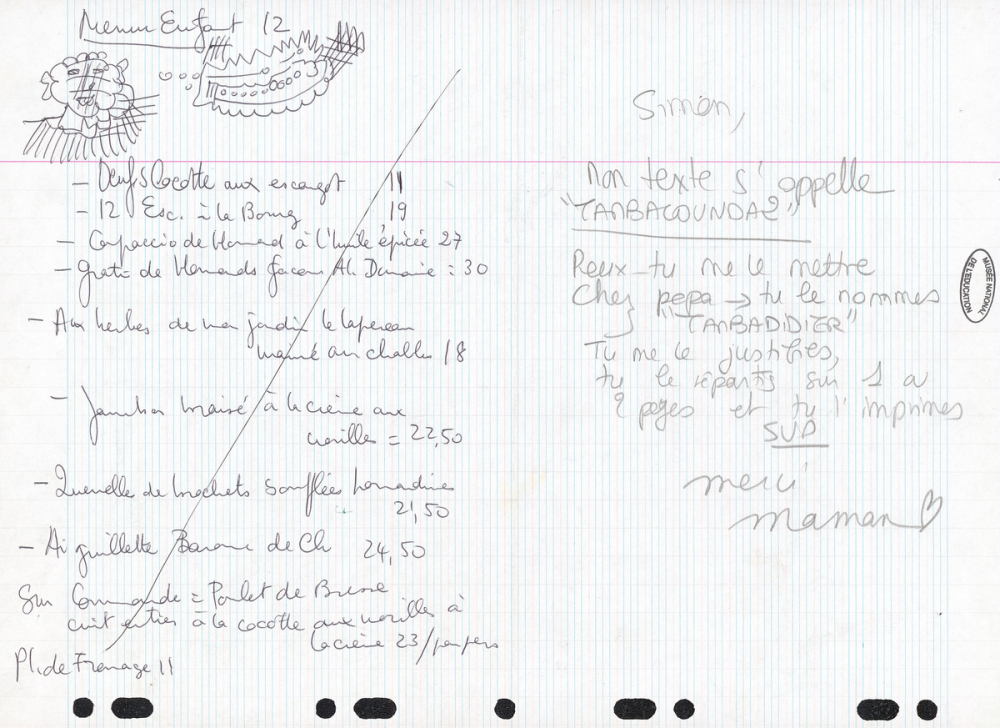 Menu Enfant 12
- Oeufs Cocotte aux escargot 11
- 12 Esc. à la Bourg 19
- Carpaccio de Homard à l'huile épicée 27
- gratin de Homards façon Al. Dumaine : 30
- Aux herbes de mon jardin le lapereau
aux challes 18
- Jambon braisé à la crème aux
morilles = 22,50
- Quenelle de brochets soufflées homardine
21,50
- Aiguillette Baronne de Ch 24,50
Sur Commande = Poulet de Bresse
cuit entier à la cocotte aux morilles à
la crème 23/par pers
Pl. de Fromage 11
Simon,
Mon texte s'appelle
"TANBACOUNDA2"
Peux-tu me le mettre
chez pepa → tu le nommes
"TANBADIDIER"
Tu me le justifies,
tu le répartis sur 1 ou
2 pages et tu l'imprimes
SVP
merci
maman
MUSÉE NATIONAL
DE L'ÉDUCATION